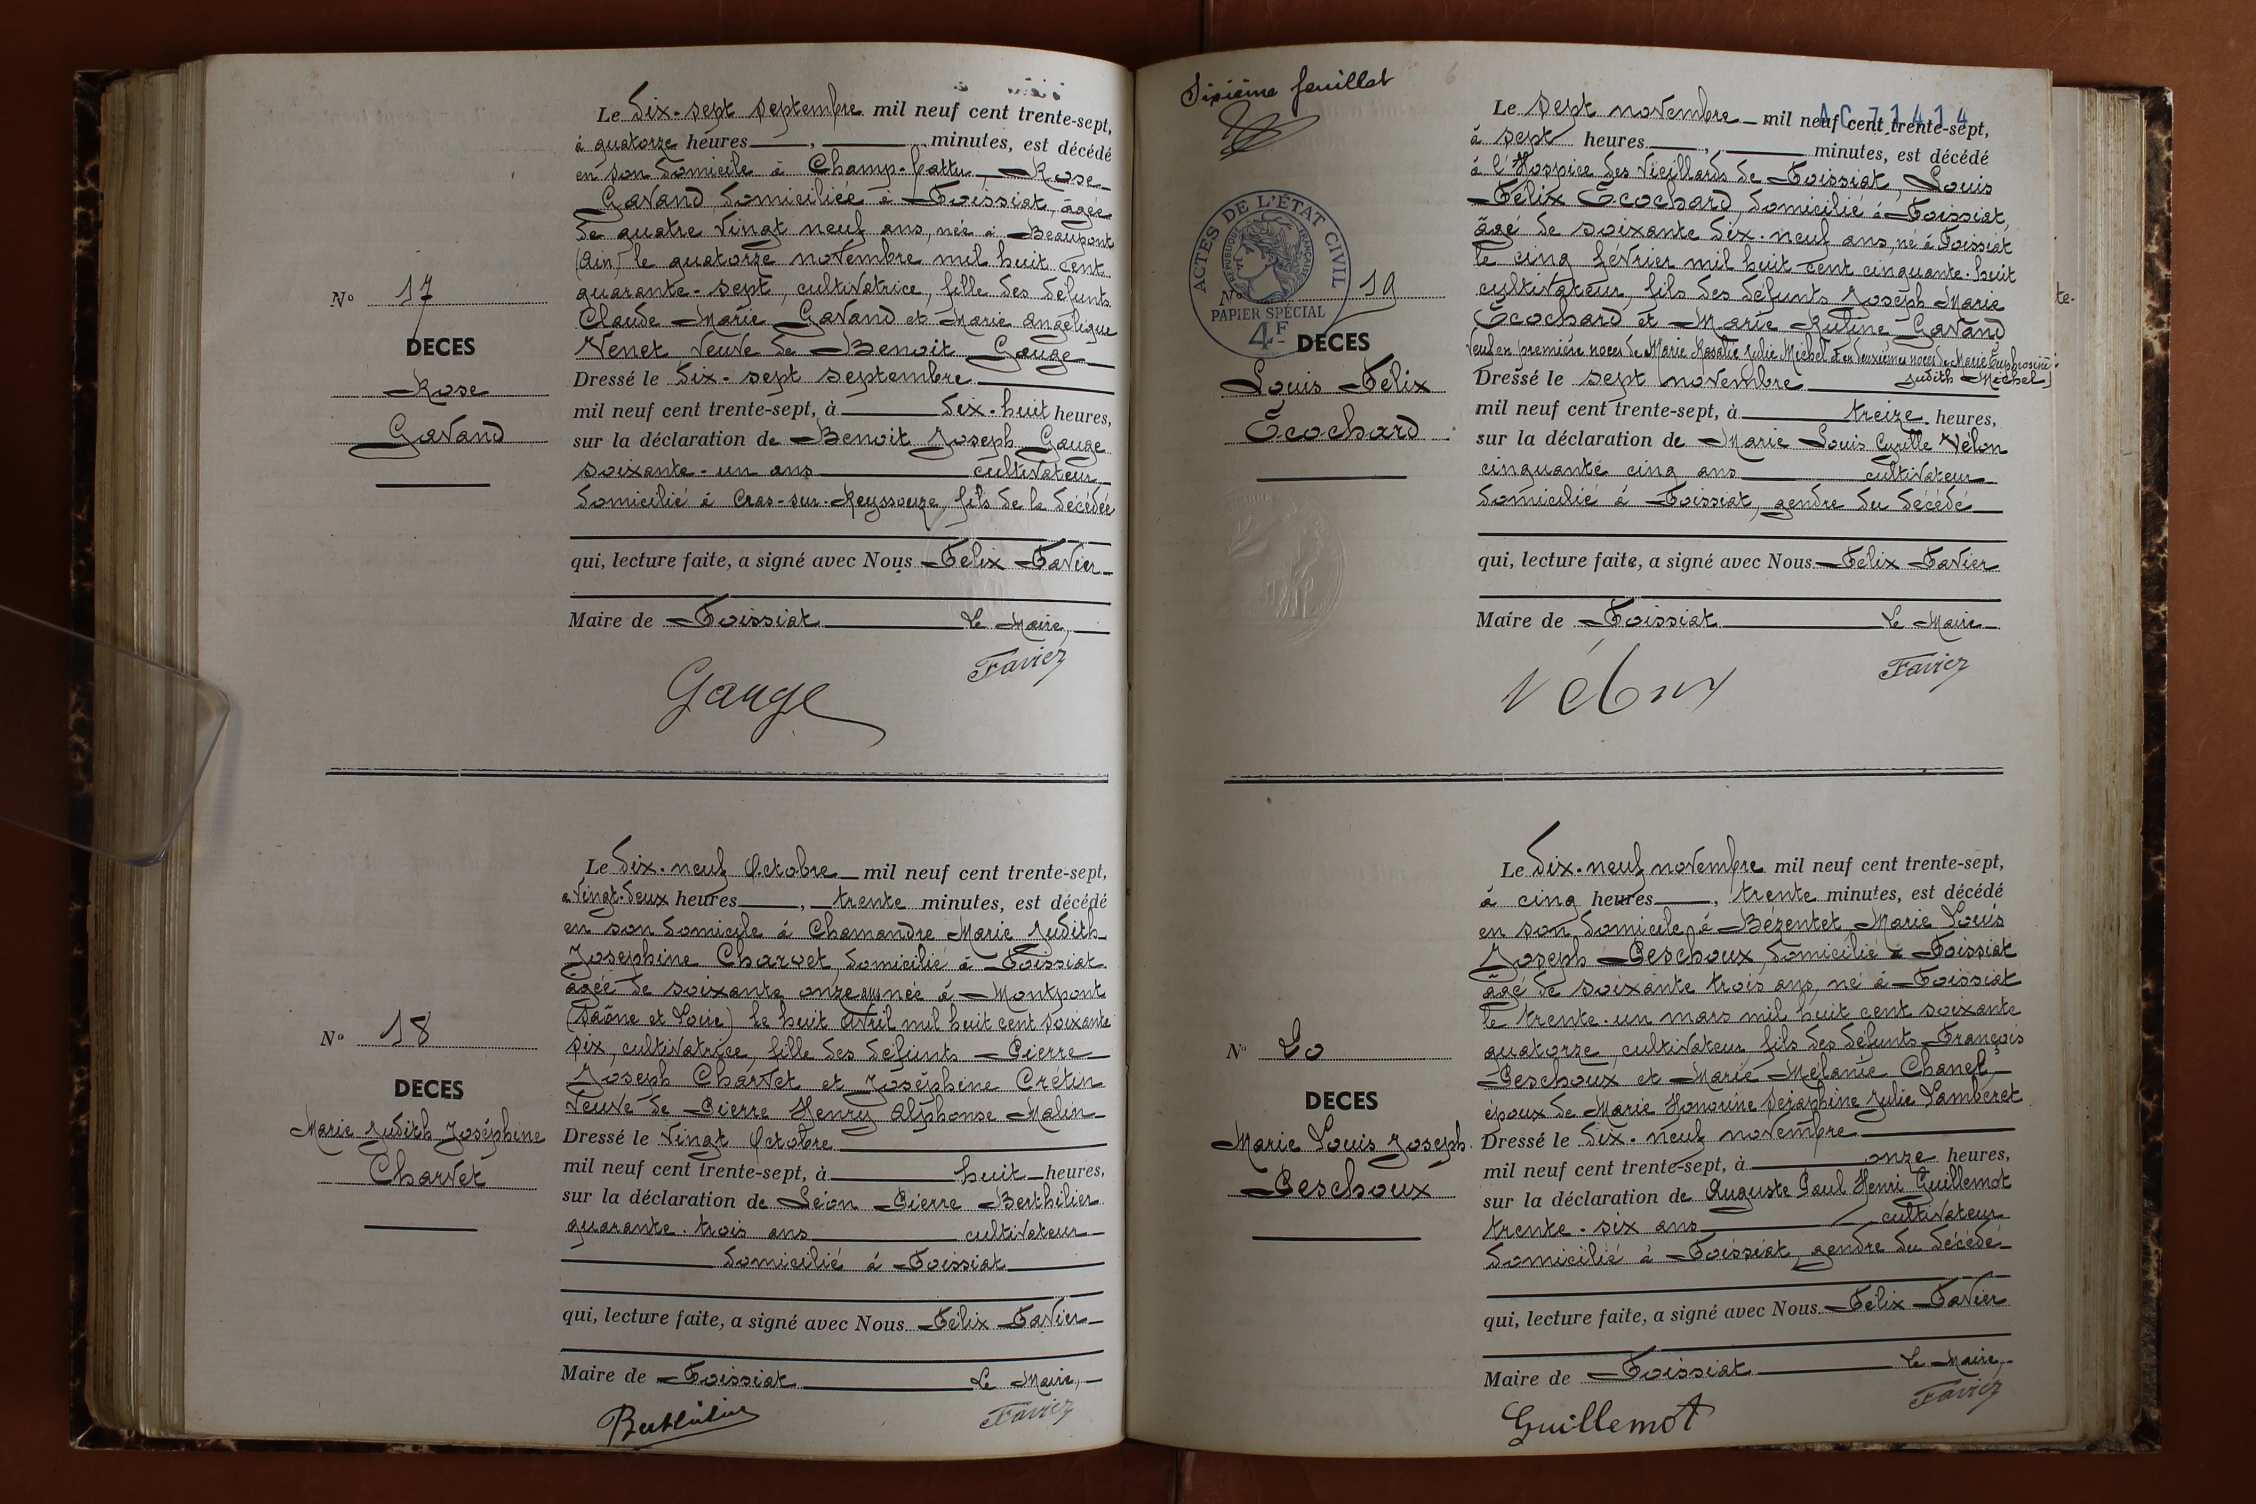 Le dix-sept septembre mil neuf cent trente-sept,
à quatorze heures, minutes, est décédé
en son domicile à Champ-battu, Rose
Gavand, domiciliée à Foissiat, âgée
de quatre vingt neuf ans, née à Beaupont
(Ain) le quatorze novembre mil huit cent
quarante-sept, cultivatrice, fille des défunts
Claude Marie Gavand et Marie Angélique
Venet veuve de Benoit Gauge
Nº 17
DECES
Rose
Gavand
Dressé le dix-sept septembre
mil neuf cent trente-sept, à dix-huit heures,
sur la déclaration de Benoit Joseph Gauge
soixante-un ans cultivateur
domicilié à Cras-sur-Reyssouze, fils de la décédée
qui, lecture faite, a signé avec Nous Félix Favier
Maire de Foissiat Le Maire,
Favier
Gauge
Le dix-neuf Octobre mil neuf cent trente-sept,
à vingt-deux heures, trente minutes, est décédé
en son domicile à Chamandre Marie Judith
Josephine Charvet, domicilié à Foissiat
âgée de soixante onze ans née à Montpont
(Saône et Loire) le huit Avril mil huit cent soixante
six, cultivatrice, fille des défunts Pierre
Joseph Charvet et Joséphine Crétin
veuve de Pierre Henry Alphonse Malin
Nº 18
DECES
Marie Judith Joséphine
Charvet
Dressé le vingt Octobre
mil neuf cent trente-sept, à huit heures,
sur la déclaration de Léon Pierre Berthilier
quarante-trois ans cultivateur
domicilié à Foissiat
qui, lecture faite, a signé avec Nous Félix Favier
Maire de Foissiat Le Maire,
Favier
Berthilier
Sixième feuillet 6
AC 71414
Le sept novembre mil neuf cent trente-sept,
à sept heures, minutes, est décédé
à l'Hospice des Vieillards de Foissiat, Louis
Félix Écochard, domicilié à Foissiat,
âgé de soixante dix-neuf ans, né à Foissiat
le cinq février mil huit cent cinquante-huit
cultivateur, fils des défunts Joseph Marie
Écochard et Marie Gavand
Veuf en première noces de Marie Rosalie Julie Michel et en deuxièmes noces de Marie Euphrosine
Judith Michel
ACTES DE L'ÉTAT CIVIL
RÉPUBLIQUE FRANÇAISE
PAPIER SPÉCIAL
4F
Nº 19
DECES
Louis Félix
Écochard
Dressé le sept novembre
mil neuf cent trente-sept, à treize heures,
sur la déclaration de Marie Louis Velon
cinquante cinq ans cultivateur
domicilié à Foissiat, gendre du décédé
qui, lecture faite, a signé avec Nous Félix Favier
Maire de Foissiat Le Maire
Favier
Vélon
te-
Le dix-neuf novembre mil neuf cent trente-sept,
à cinq heures, trente minutes, est décédé
en son domicile à Bézentet Marie Louis
Joseph Peschoux, domicilié à Foissiat
âgé de soixante trois ans, né à Foissiat
le trente-un mars mil huit cent soixante
quatorze, cultivateur, fils des défunts François
Peschoux et Marie Mélanie Chanel
époux de Marie Honorine Séraphine Julie Lamberet
Nº 20
DECES
Marie Louis Joseph
Peschoux
Dressé le dix-neuf novembre
mil neuf cent trente-sept, à onze heures,
sur la déclaration de Auguste Paul Henri Guillemot
trente-six ans cultivateur
domicilié à Foissiat, gendre du décédé
qui, lecture faite, a signé avec Nous Félix Favier
Maire de Foissiat Le Maire,
Favier
Guillemot